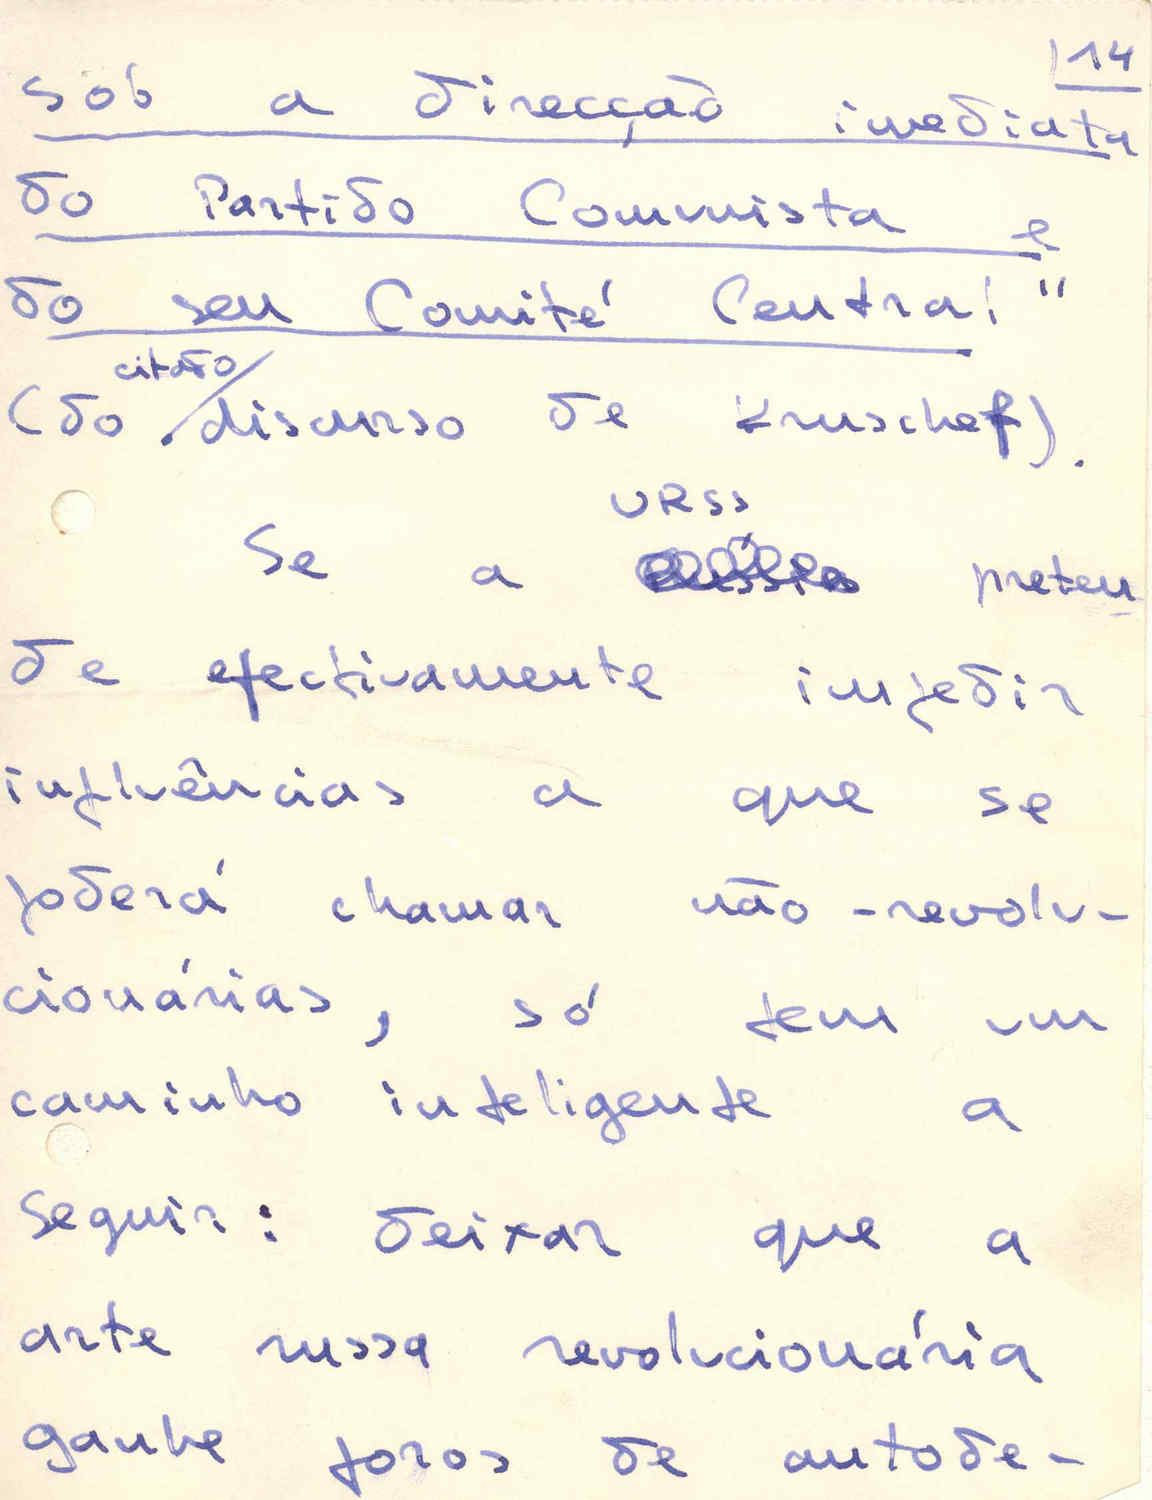 14
sob a direcção imediata
do Partido Comunista e
do seu Comité Central"
citado
(do discurso de Kruschef).
URSS
Se a preten
de efectivamente impedir
influências a que se
poderá chamar não-revolu-
cionárias, só tem um
caminho inteligente a
seguir: deixar que a
arte russa revolucionária
ganhe foros de autode-